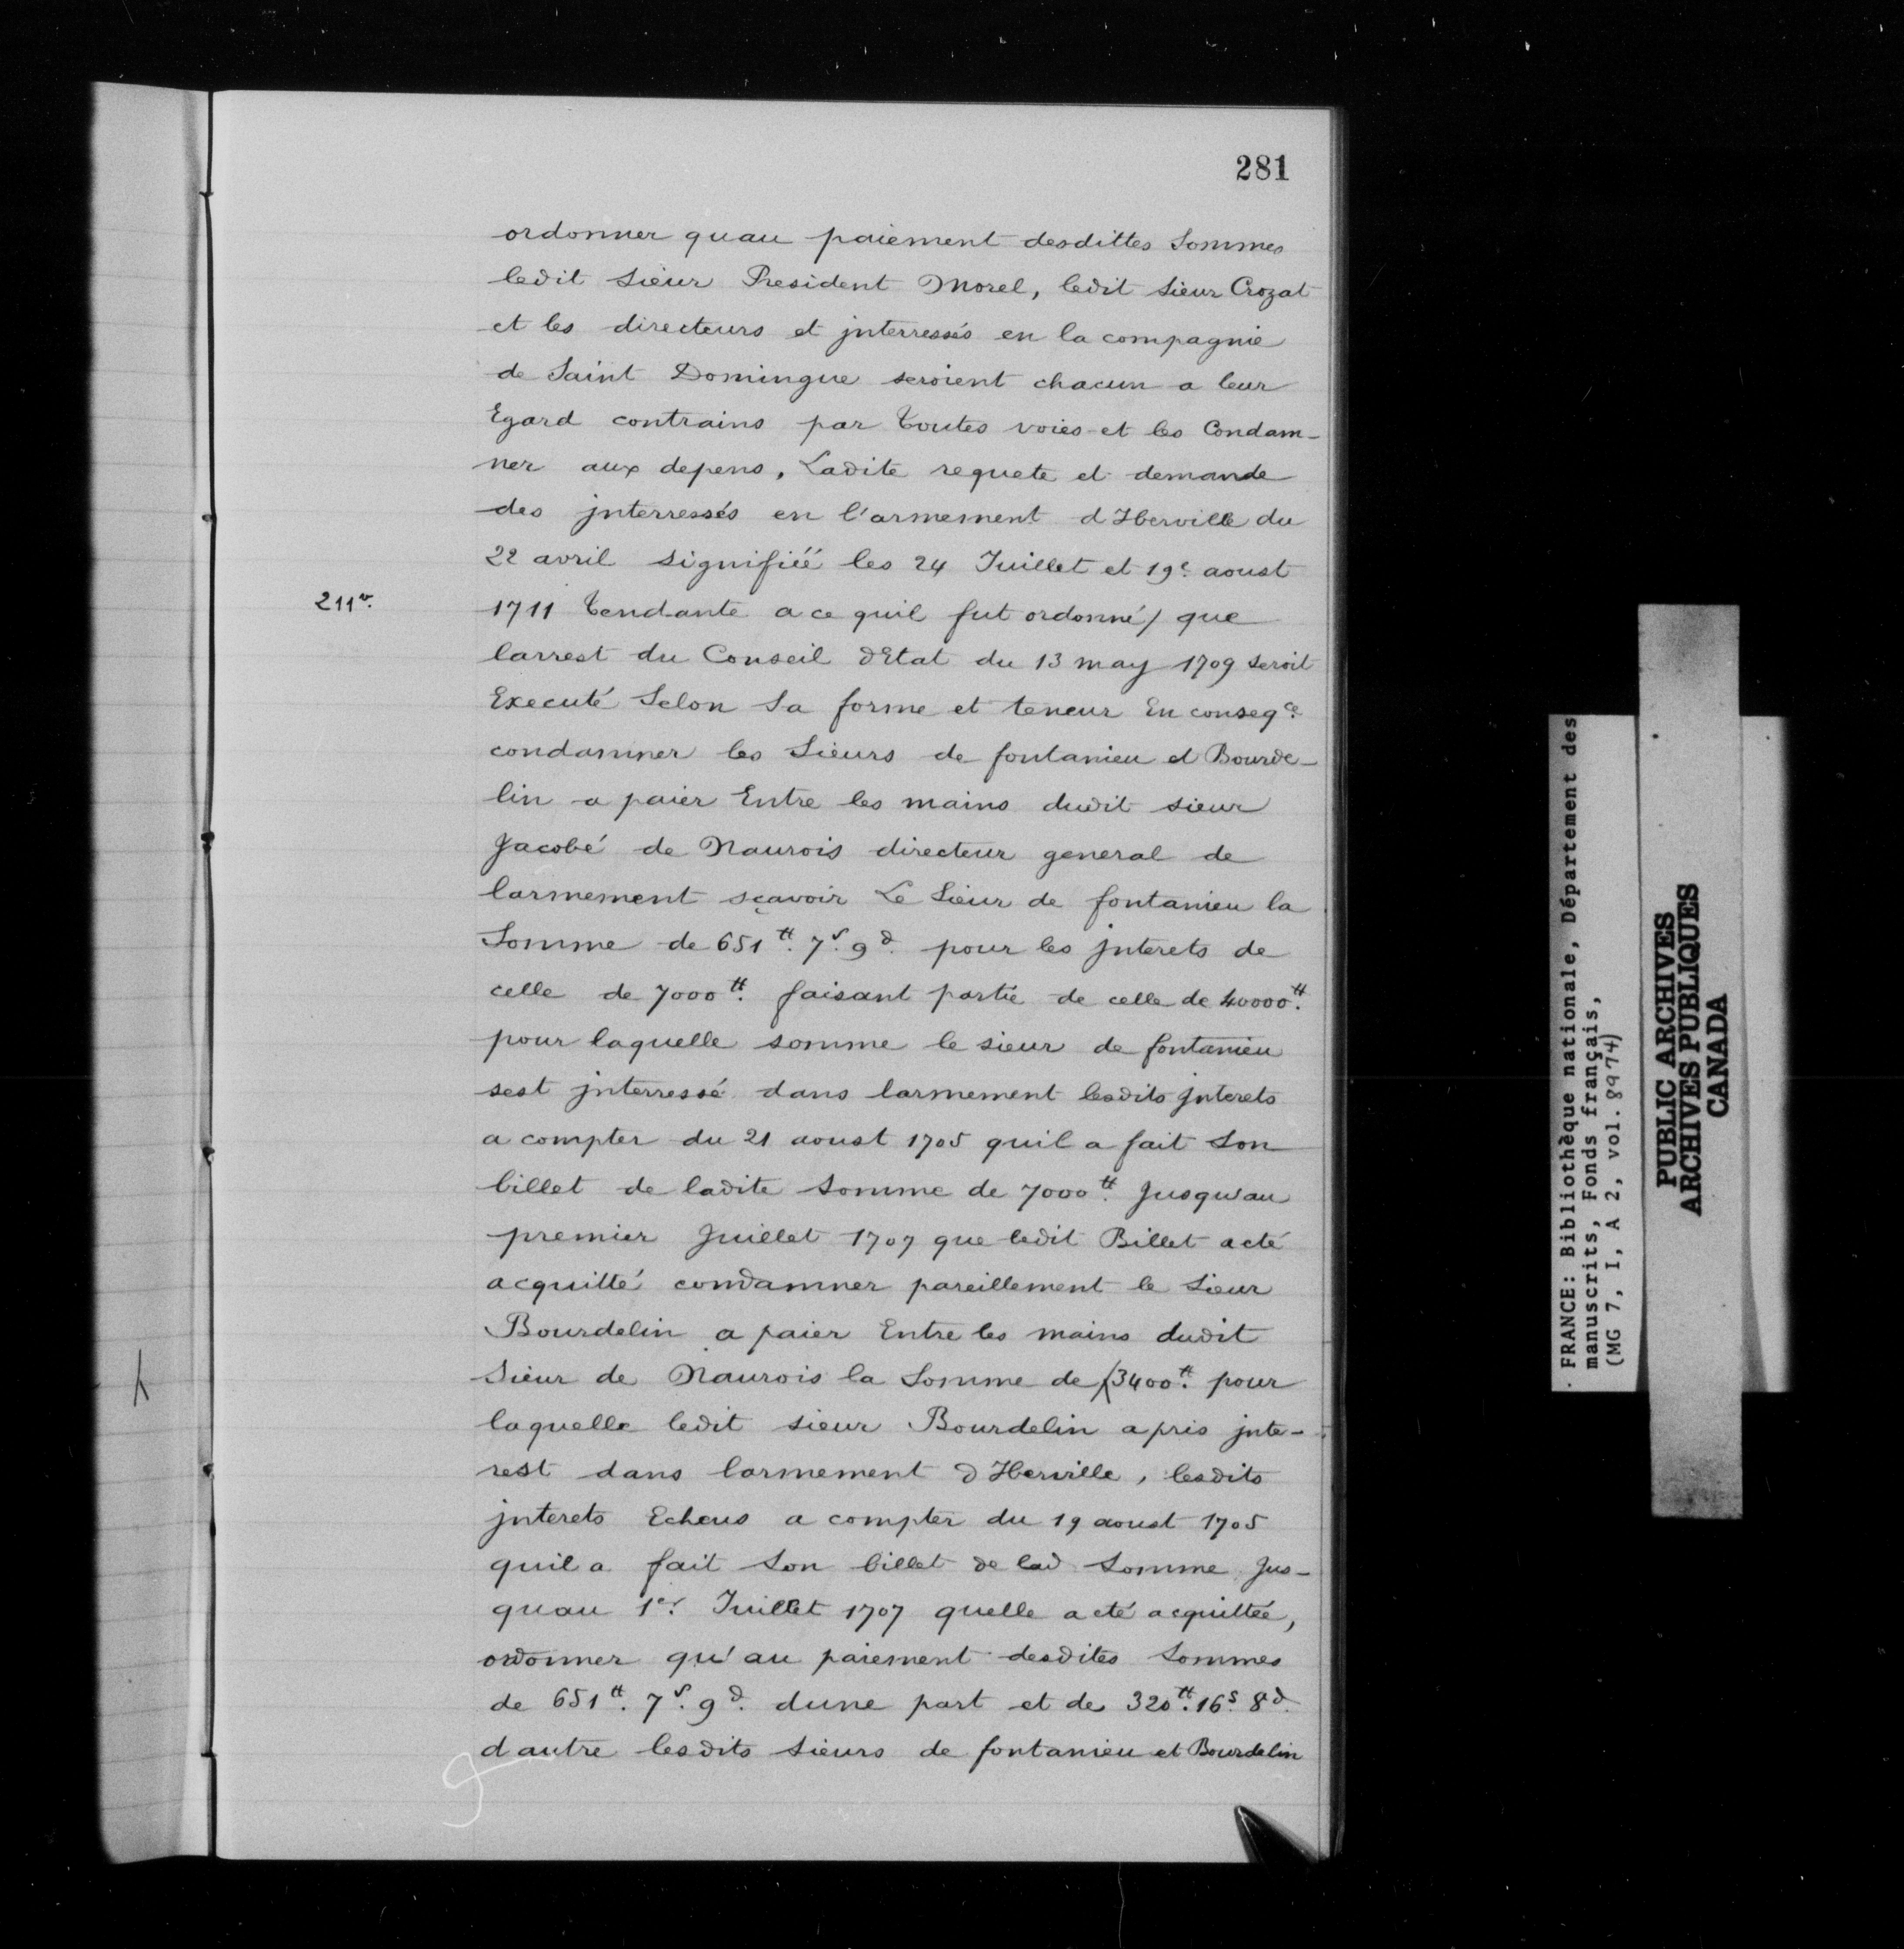 281
ordonner quau paiement desdittes Sommes
ledit Sieur President Morel, ledit Sieur Crozat
et les directeurs et jnterressés en la compagnie
de Saint Domingue seroient chacun a leur
Egard contrains par Toutes voies et les Condam-
ner aux depens, Ladite requete et demande
des jnterressés en l'armement d'Iberville du
22 avril signifiée les 24 Juillet et 19e. aoust
211vo.
1711 Tendante a ce quil fut ordonné/ que
larrest du Conseil dEtat du 13 may 1709 seroit
Executé Selon Sa forme et teneur En conseqce.
condamner les Sieurs de fontanieu et Bourde-
lin a paier Entre les mains dudit sieur
Jacobé de Naurois directeur general de
larmement sçavoir Le Sieur de fontanieu la
Somme de 651tt. 7s. 9d. pour les jnterets de
celle de 7000tt. faisant partie de celle de 40000tt.
pour laquelle somme le sieur de fontanieu
sest jnterressé dans larmement lesdits jnterets
a compter du 21 aoust 1705 quil a fait Son
billet de ladite Somme de 7000tt. Jusqu'au
premier Juillet 1707 que ledit Billet a eté
acquitté condamner pareillement le Sieur
Bourdelin a paier Entre les mains dudit
Sieur de Naurois la Somme de (3400tt. pour
laquelle ledit sieur Bourdelin a pris jnte-
rest dans larmement d'Iberville, lesdits
jnterets Echeus a compter du 19 aoust 1705
quil a fait Son billet de lad Somme Jus-
quau 1er. Juillet 1707 quelle a eté acquittée,
ordonner qu'au paiement desdites Sommes
de 651tt. 7s. 9d. dune part et de 320tt. 16s. 8d.
dautre lesdits Sieurs de fontanieu et Bourdelin
FRANCE: Bibliothèque nationale, Département des
manuscrits, Fonds français,
(MG 7, I, A 2, vol. 8974)
PUBLIC ARCHIVES
ARCHIVES PUBLIQUES
CANADA